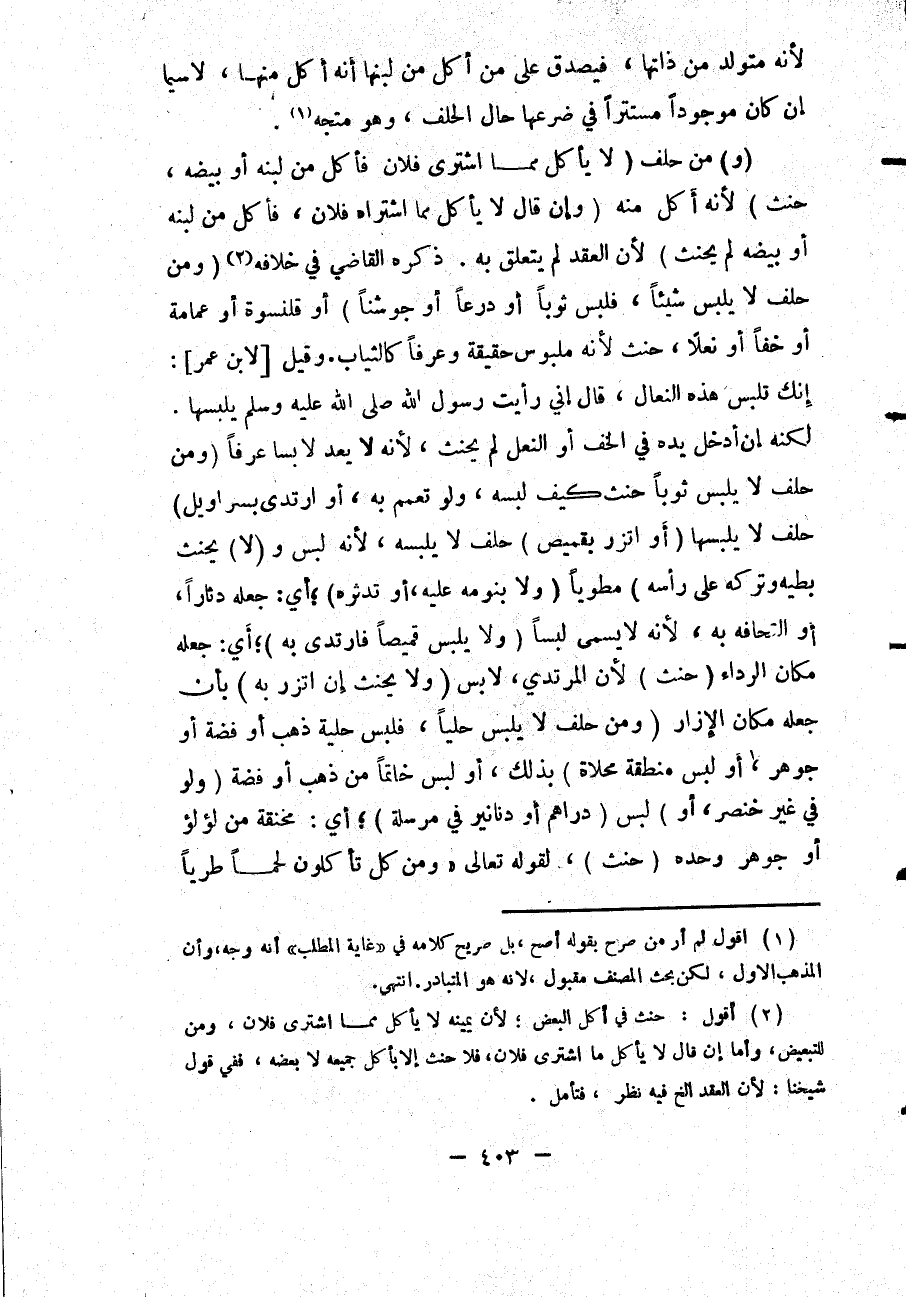 لأنه متولد من ذاتها ، فيصدق على من أكل من لبنها أنه أكل منهـا ، لاسيما
ان كان موجوداً مستتراً في ضرعها حال الحلف ، وهو متجه(١) .
(و) من حلف ( لا يأكل ممـــا اشترى فلان فأكل من لبنه أو بيضه ،
حنث ) لأنه أكل منه ( وإن قال لا يأكل مما اشتراه فلان ، فأكل من لبنه
أو بيضه لم يحنث ) لأن العقد لم يتعلق به . ذكره القاضي في خلافه(٢) ( ومن
حلف لا يلبس شيئاً ، فلبس ثوباً أو درعاً أو جوشناً ) أو قلنسوة أو عمامة
أو خفاً أو نعلًا ، حنث لأنه ملبوس حقيقة وعرفاً كالثياب. وقيل [لابن عمر] :
إنك تلبس هذه النعال ، قال إني رأيت رسول الله صلى الله عليه وسلم يلبسها .
لكنه إن أدخل يده في الخف أو النعل لم يحنث ، لأنه لا يعد لابسا عرفاً (ومن
حلف لا يلبس ثوباً حنث كيف لبسه ، ولو تعمم به ، أو ارتدى بسراويل)
حلف لا يلبسها ( أو اتزر بقميص ) حلف لا يلبسه ، لأنه لبس و (لا) يحنث
بطيه وتركه على رأسه ) مطوياً ( ولا بنومه عليه ،أو تدثره) ؛أي: جعله دثاراً،
أو التحافه به ، لأنه لايسمى لبساً ( ولا يلبس قميصاً فارتدى به ) ؛أي: جعله
مكان الرداء ( حنث ) لأن المرتدي، لابس ( ولا يحنث إن اتزر به ) بأن
جعله مكان الإزار ( ومن حلف لا يلبس حلياً ، فلبس حلية ذهب أو فضة أو
جوهر ، أو لبس منطقة محلاة ) بذلك ، أو لبس خاتماً من ذهب أو فضة ( ولو
في غير خنصر ، أو ) لبس ( دراهم أو دنانير في مرسلة ) ؛ أي : مخنقة من لؤلؤ
أو جوهر وحده ( حنث ) ، لقوله تعالى « ومن كل تأكلون لحمـــاً طرياً
(١) اقول لم أر من صرح بقوله أصح ،بل صريح كلامه في «غاية المطلب» أنه وجه، وأن
المذهب الاول ، لكن بحث المصنف مقبول ،لانه هو المتبادر. انتهى.
(٢) أقول : حنث في أكل البعض ؛ لأن يمينه لا يأكل ممـــا اشترى فلان ، ومن
للتبعيض، وأما إن قال لا يأكل ما اشترى فلان، فلا حنث إلا بأكل جميعه لا بعضه ، ففي قول
شيخنا : لأن العقد الخ فيه نظر ، فتأمل .
— ٤٠٣ —